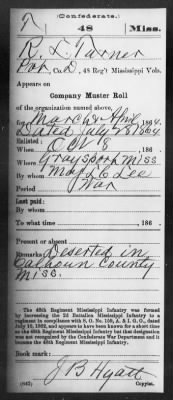 (Confederate.)
T 48 Miss.
R. L. Turner
Pvt, Co. D, 48 Reg't Mississippi Vols.
Appears on
Company Muster Roll
of the organization named above,
for March & April, 1864.
Dated July 28 1864
Enlisted:
When Oct 8, 186 .
Where Graysport Miss
By whom Maj L. C. Lee
Period War
Last paid:
By whom
To what time , 186 .
Present or absent
Remarks: Deserted in
Calhoun County
Miss.
The 48th Regiment Mississippi Infantry was formed
by increasing the 2d Battalion Mississippi Infantry to a
regiment in compliance with S. O. No. 159, A. & I. G. O., dated
July 10, 1862, and appears to have been known for a short time
as the 49th Regiment Mississippi Infantry but that designation
was not recognized by the Confederate War Department and it
became the 48th Regiment Mississippi Infantry.
Book mark:
J B Hyatt
(642) Copyist.